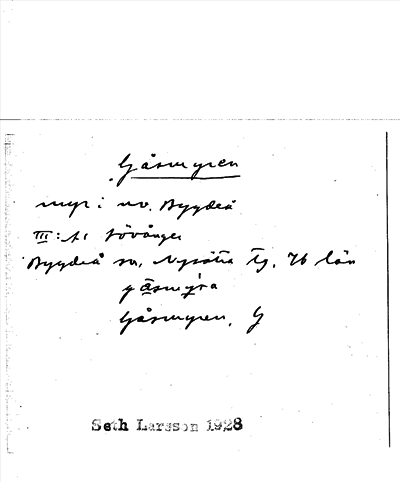 Gåsmyren
myr i nv. Bygdeå
III:A1 Lövånger
Bygdeå sn, Nysätra tg, Vb län
gåsmýra
Gåsmyren, G
Seth Larsson 1928